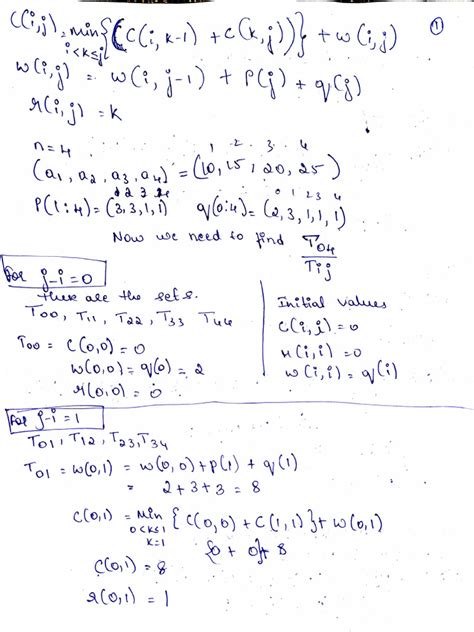 ①
C(i,j) = min {(C(i,k-1) + C(k,j))} + w(i,j)
i<k≤j
w(i,j) = w(i,j-1) + P(j) + q(j)
r(i,j) = k
n=4
1 2 3 4
(a1, a2, a3, a4) = (10, 15, 20, 25)
1 2 3 4 0 1 2 3 4
P(1:4) = (3,3,1,1) q(0:4) = (2,3,1,1,1)
Now we need to find T04
Tij
For j-i=0
these are the sets.
T00, T11, T22, T33 T44
T00 = C(0,0) = 0
w(0,0) = q(0) = 2
r(0,0) = 0
Initial values
C(i,i) = 0
r(i,i) = 0
w(i,i) = q(i)
For j-i=1
T01, T12, T23, T34
T01 = w(0,1) = w(0,0) + P(1) + q(1)
= 2+3+3 = 8
C(0,1) = min {C(0,0) + C(1,1)} + w(0,1)
0<k≤1
k=1
{0 + 0} + 8
C(0,1) = 8
r(0,1) = 1